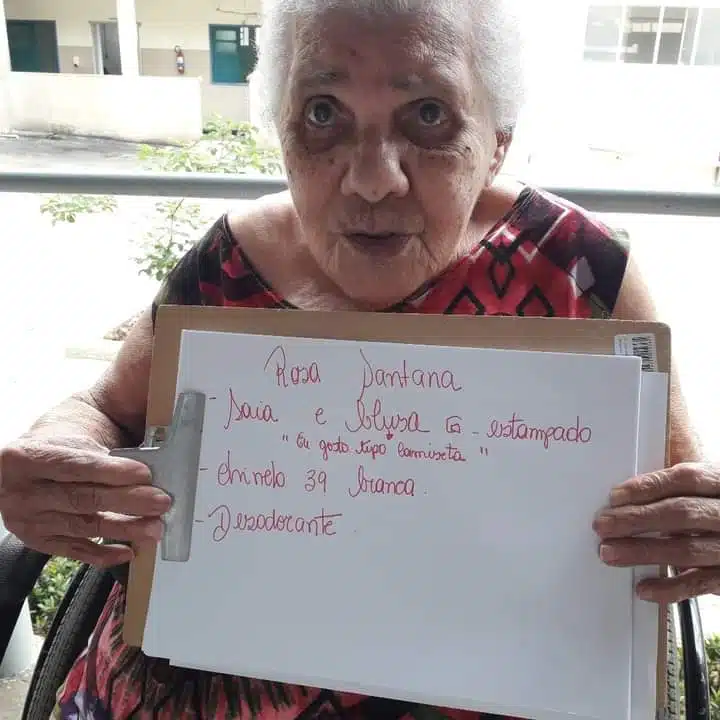 Rosa Santana
- Saia e blusa G - estampado
"Eu gosto tipo camiseta"
- chinelo 39 branca.
- Desodorante.